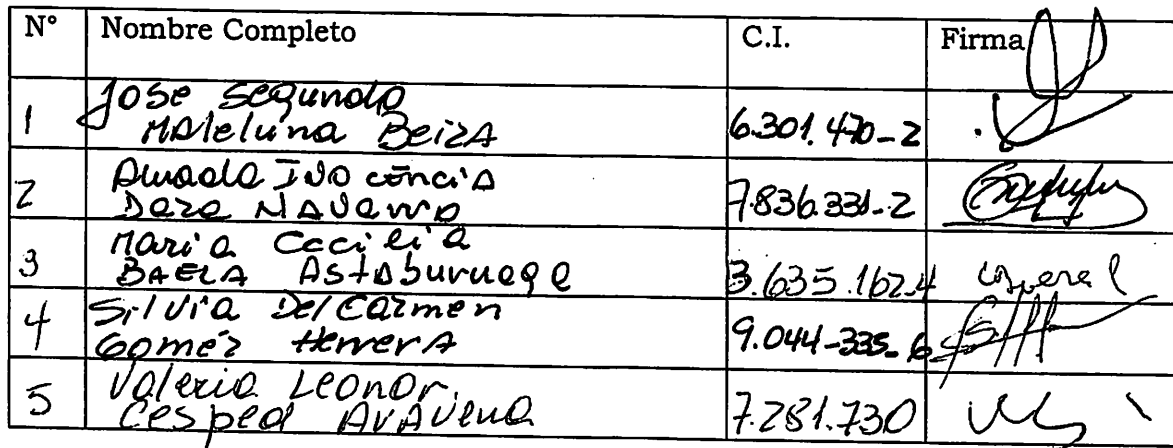 N° Nombre Completo C.I. Firma
Jose Segundo
1 Maleluna Beiza 6.301.470-2
2 Inocencia 7.836.331-2
Navarro
Maria Cecilia
3 BAEZA Astaburuaga 3.635.162.4
Silvia Del Carmen
4 Gomez Herrera 9.044-335-6
Valeria Leonor
5 Cesped Aravena 7.281.730